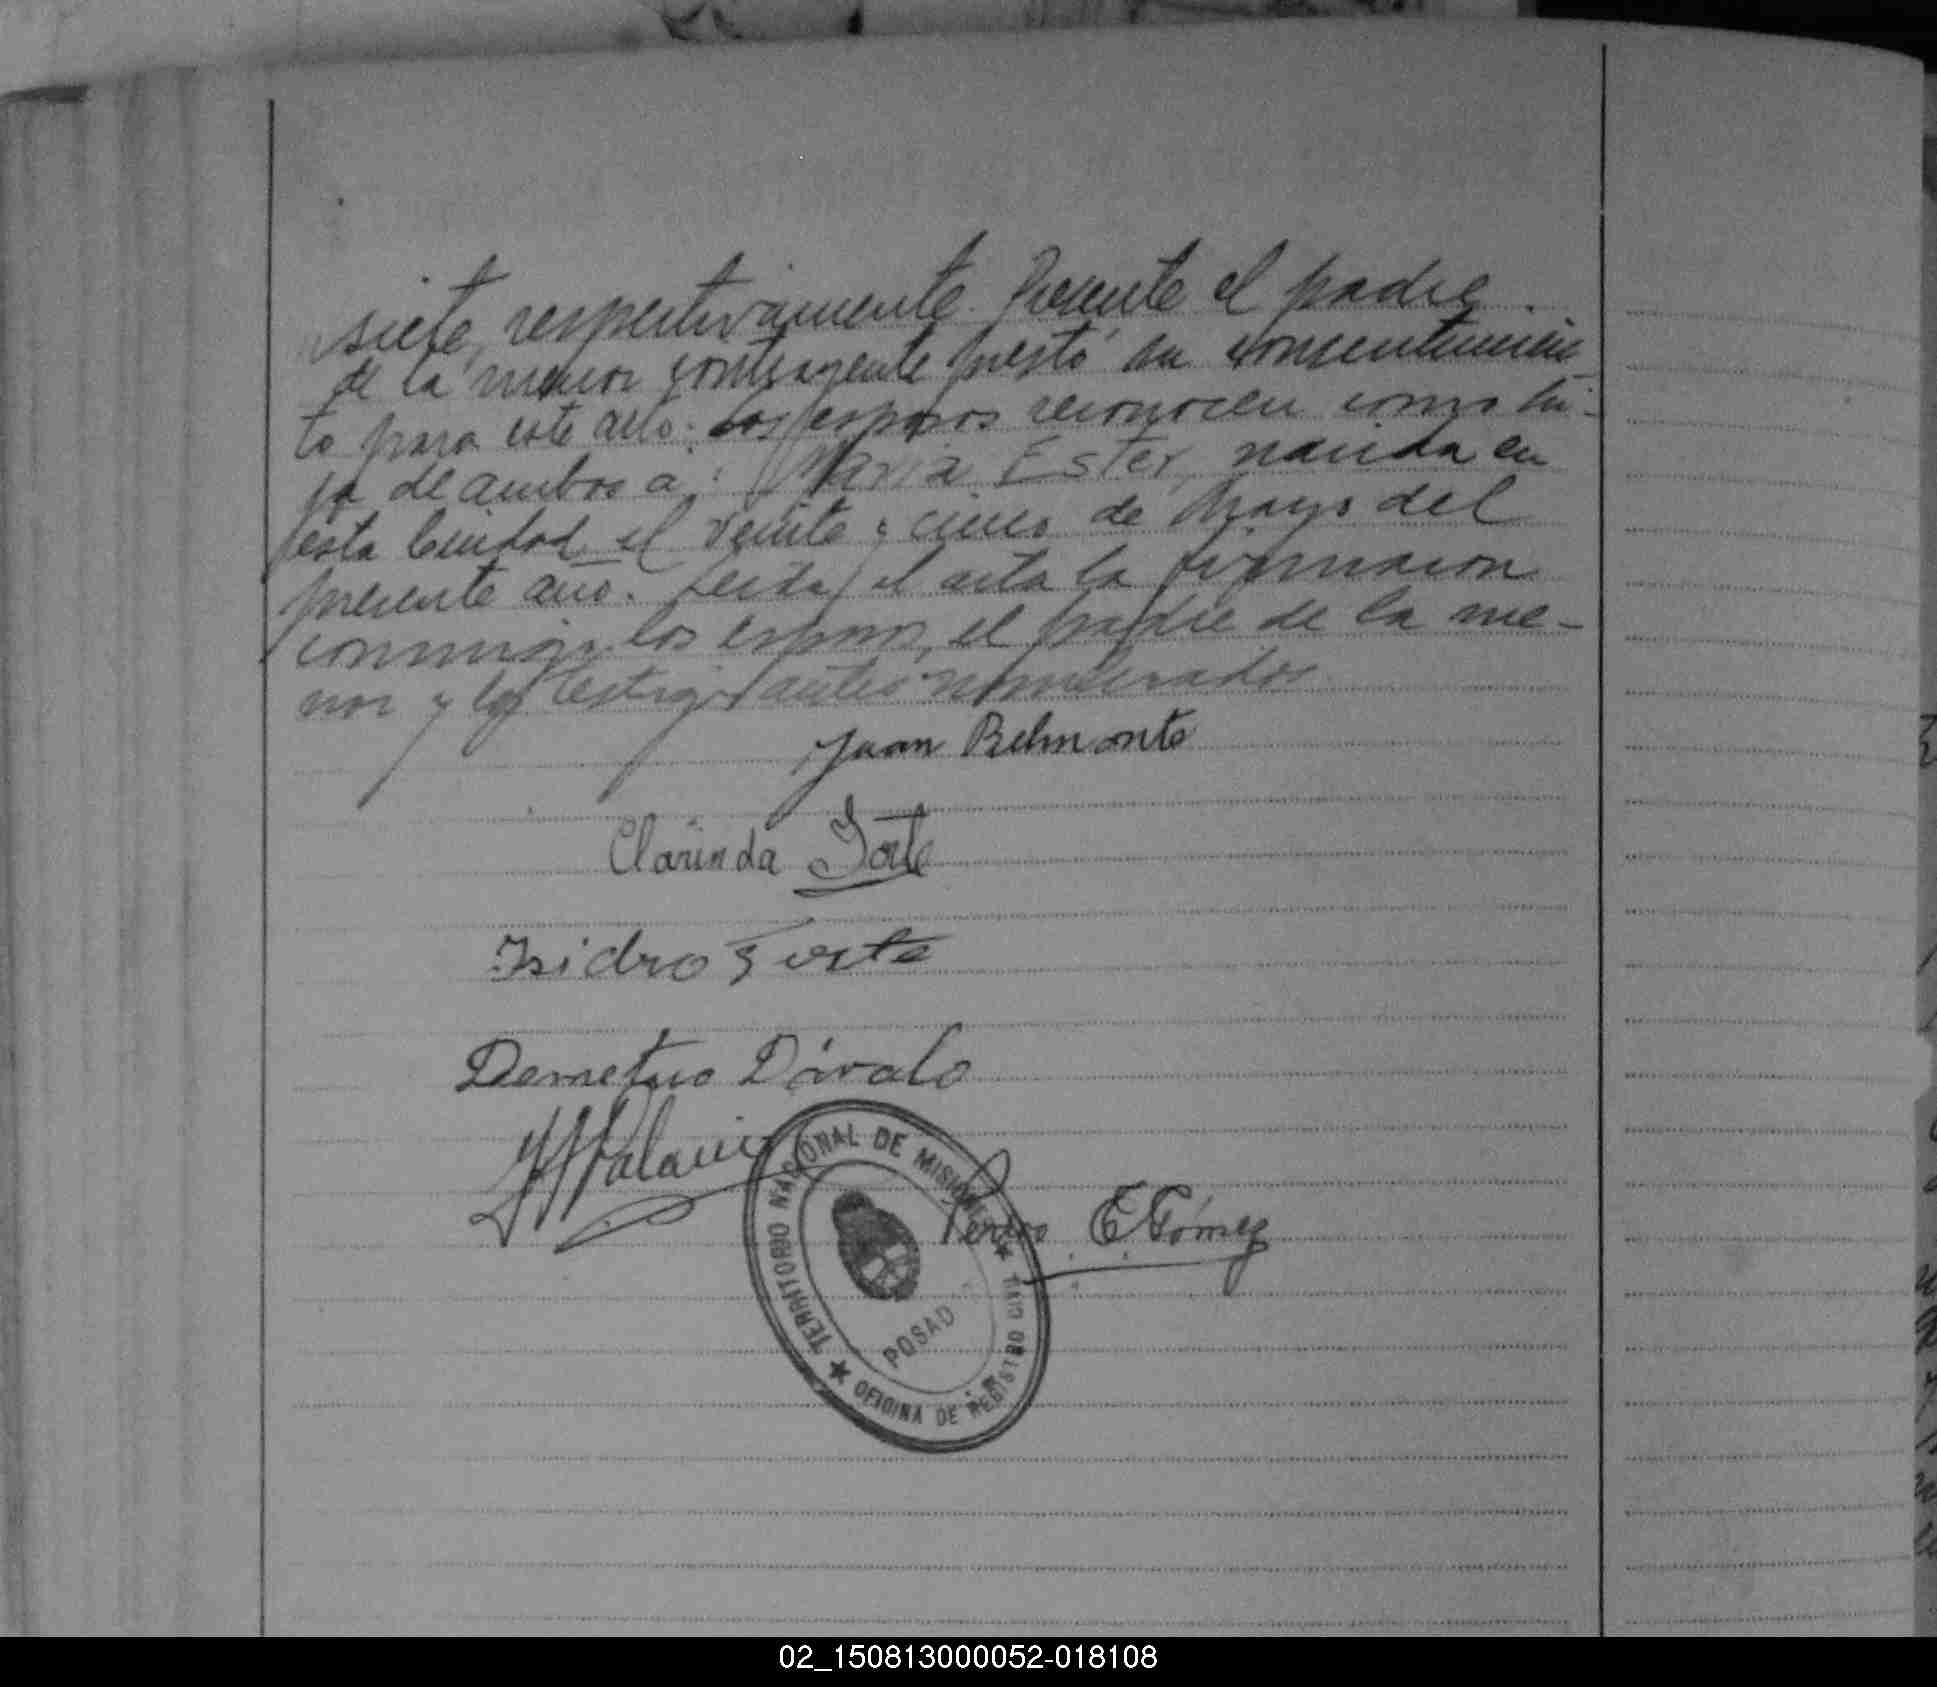 siete, respectivamente. Presente el padre
de la menor contrayente prestó su consentimien-
to para este acto. Los esposos reconocen como hi-
ja de ambos a: Maria Ester, nacida en
esta Ciudad el veinte y cinco de Mayo del
presente año. Leida el acta la firmaron
conmigo los esposos, el padre de la me-
nor y los testigos antes nombrados.
Juan Belmonte
Clarinda
Isidro
Demetrio Dávalo
E Gómez
TERRITORIO NACIONAL DE MISIONES
POSAD
OFICINA DE REGISTRO CIVIL
02_150813000052-018108